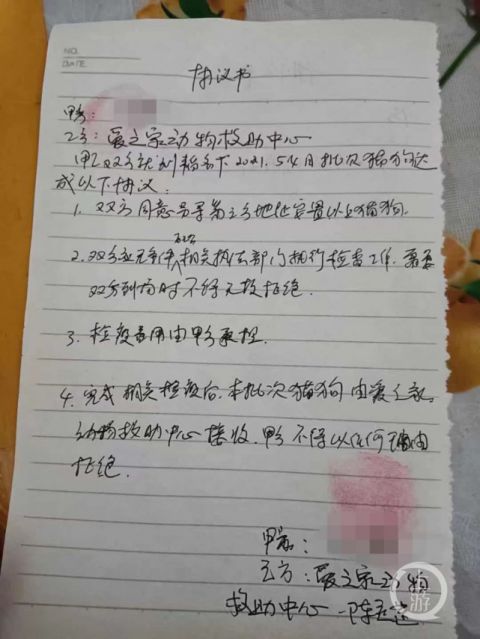 NO.
DATE
协议书
甲方:
乙方: 爱之家动物救助中心
甲乙双方就刘 名下2021.5.4日批次猫狗达
成以下协议:
1. 双方同意另寻第三方地址安置以上猫狗.
2. 双方应 配合相关执法部门执行检查工作. 需要
双方到场时不得无故拒绝.
3. 检疫费用由甲方承担.
4. 完成相关检疫后. 本批次猫狗由爱之家
动物救助中心接收. 甲方不得以任何理由
拒绝.
甲方:
乙方: 爱之家动物
救助中心 陈
游